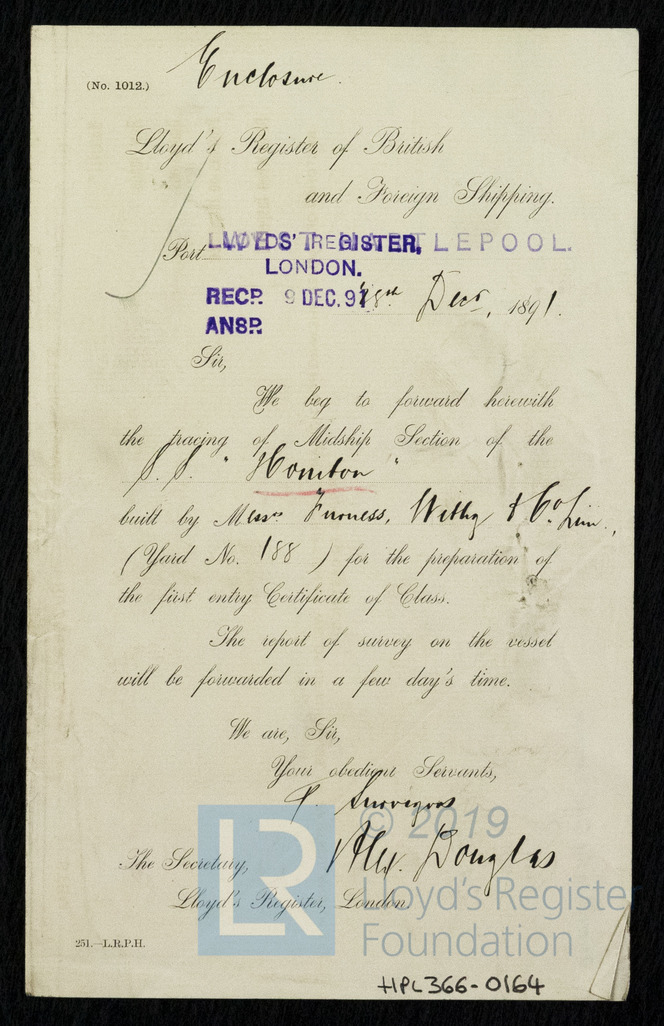 (No. 1012.)
Enclosure.
Lloyd's Register of British
and Foreign Shipping.
Port WEST HARTLEPOOL.
LLOYDS' REGISTER,
LONDON.
RECD. 9 DEC. 91
ANSD.
8th Decr, 1891.
Sir,
We beg to forward herewith
the tracing of Midship Section of the
S. S. "Honiton"
built by Messrs Furness, Withy & Co. Lim.,
(Yard No. 188) for the preparation of
the first entry Certificate of Class.
The report of survey on the vessel
will be forwarded in a few day's time.
We are, Sir,
Your obedient Servants,
P. Surveyors
Alex. Douglas
The Secretary,
Lloyd's Register, London.
251.—L.R.P.H.
LR
© 2019
Lloyd's Register
Foundation
HPL366-0164